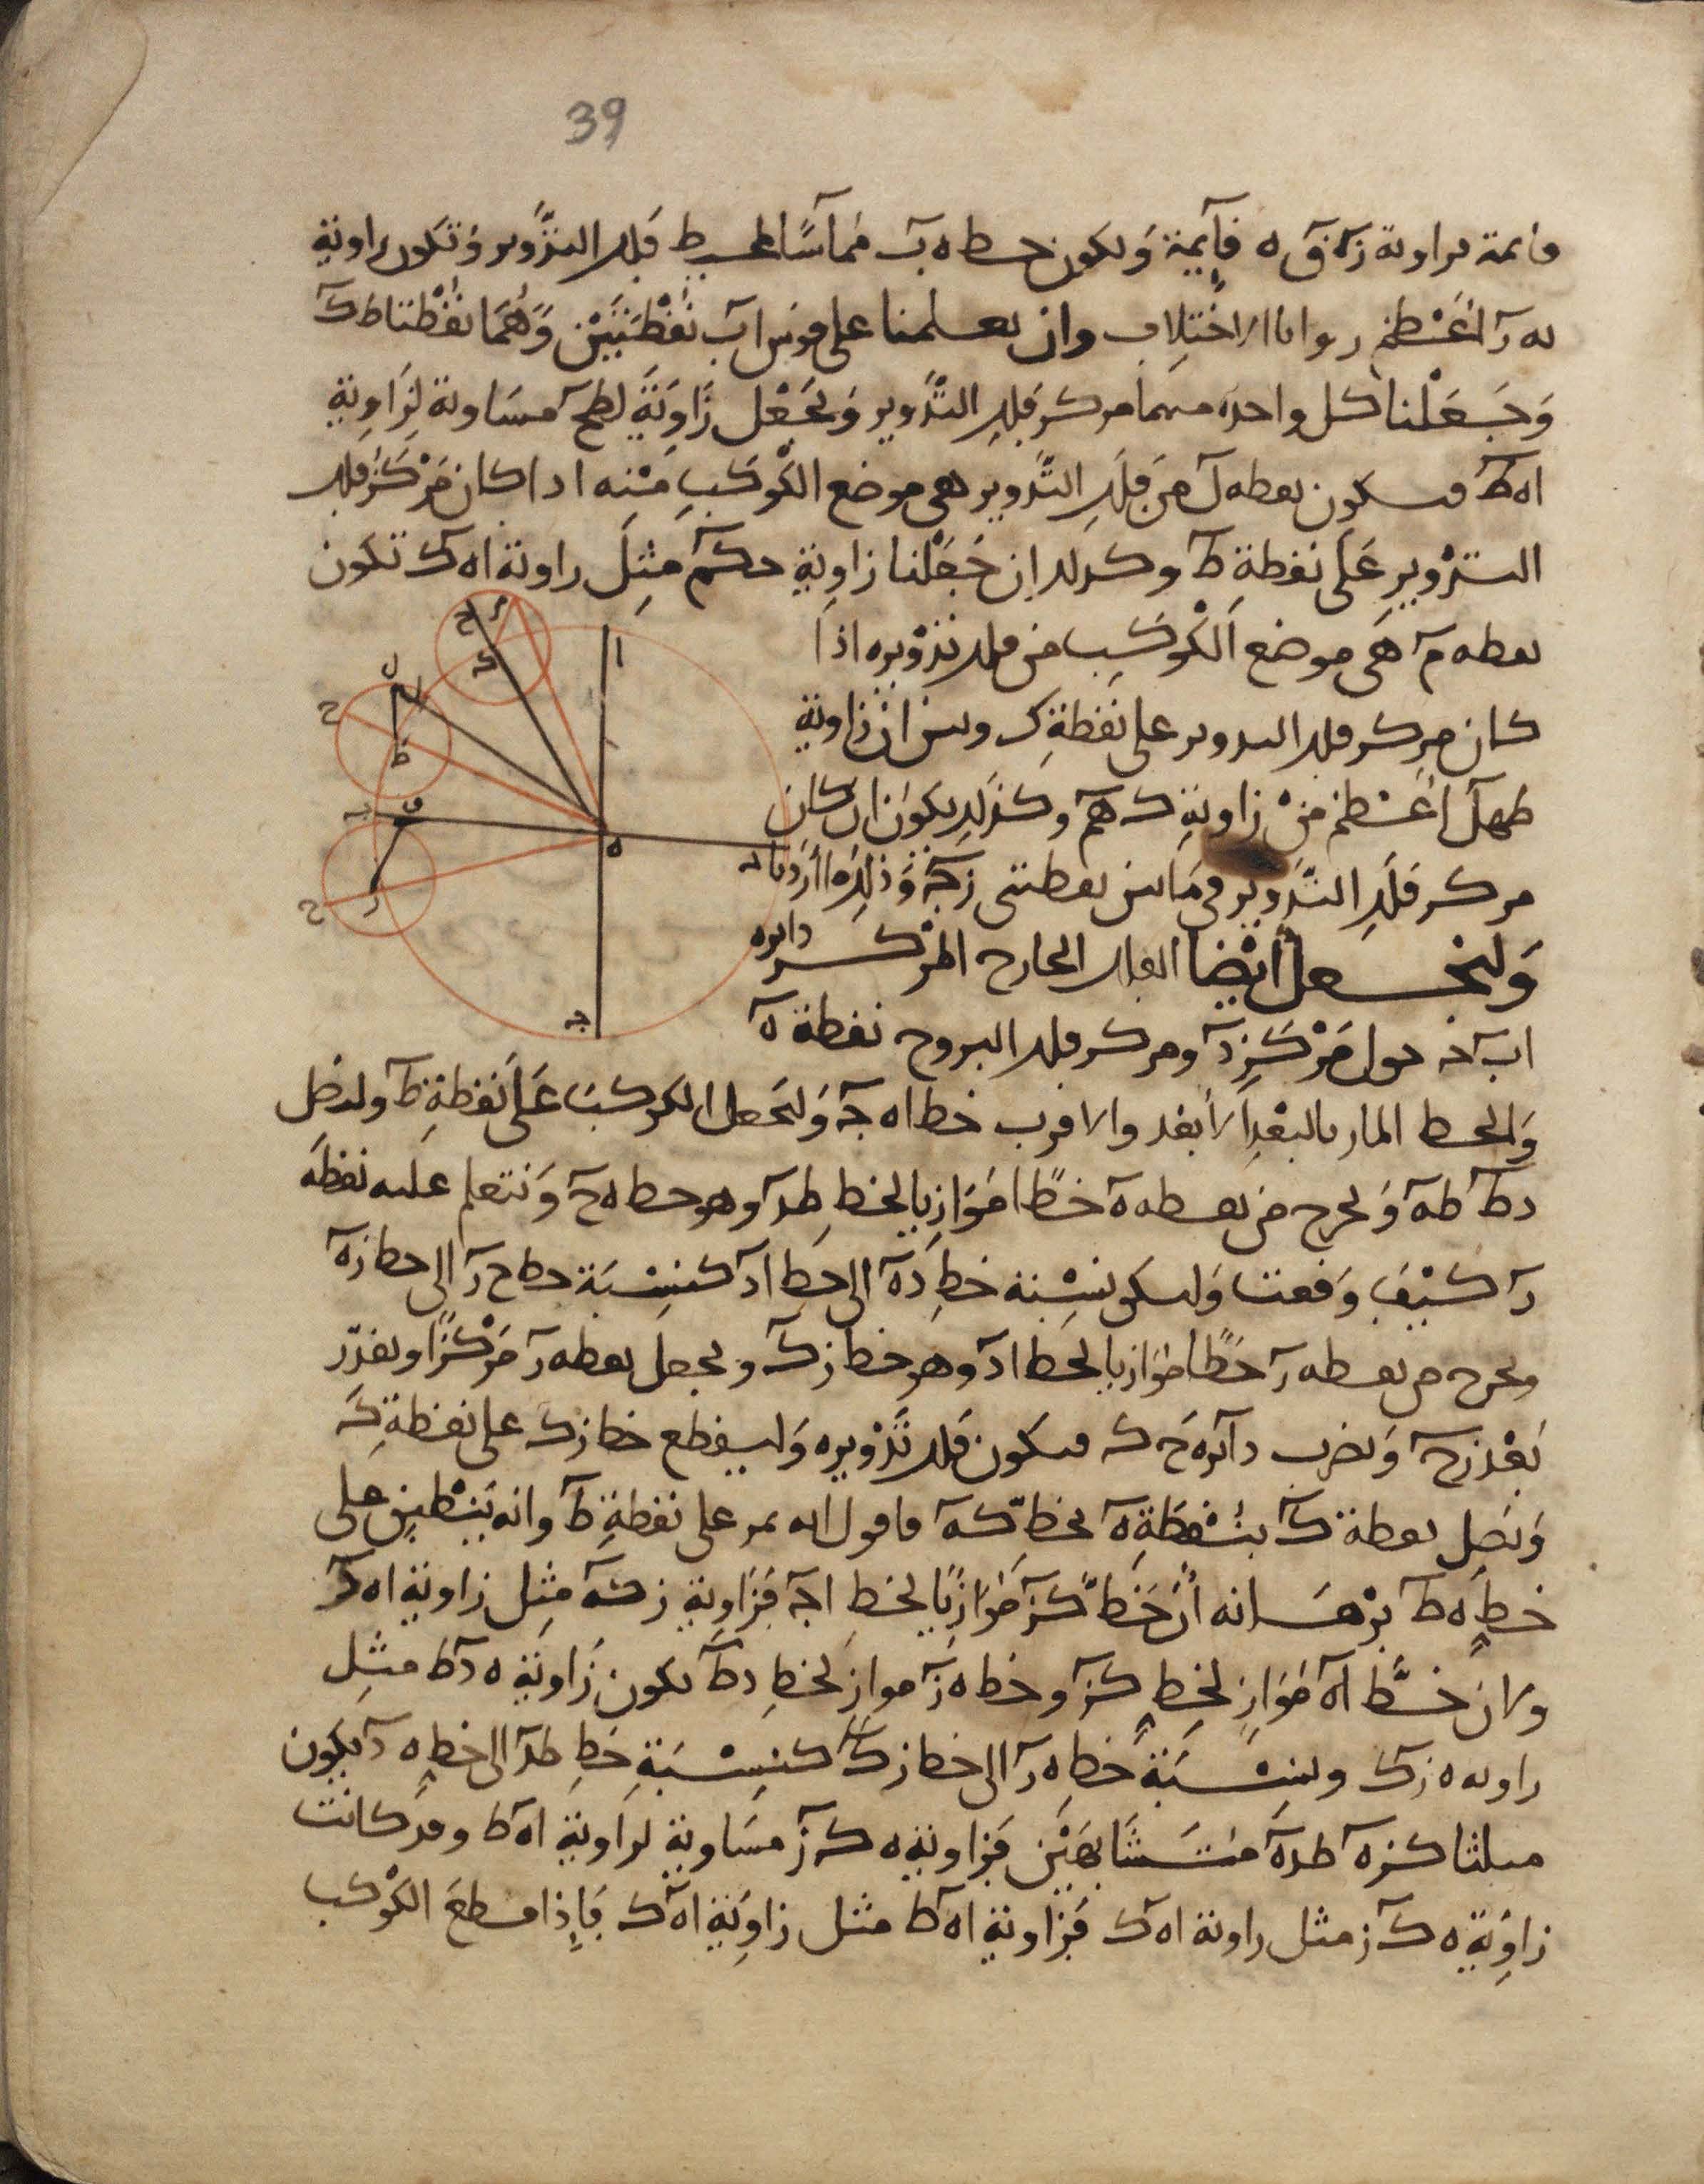 39
قايمة فزاوية زَ ق ه قآيمة وَيكون خط ه ب مُماسًا لمحيط فَلك التدْوير وَتكون زاوية
به ز أعْظم زوايا الاختلاف وان تعلمنا على قوس اب نُقْطَتَيْن وَهُمَا نقْطتا ط ك
وَجَعَلْنا كل واحدة منهما مركز فَلك التدْوير وَنجْعل زَاوِيَة لطح مسَاوية لزَاوِية
اه ط فسيكون نقطة ل من فَلك التدْوير هى موضع الكَوْكَبِ مِنْه اذا كان مَرْكَز فلك
التدْوير عَلَى نقطةِ ط وكذلك ان جَعَلْنا زاوية حكم مثِل زاوية اه ك تكون
نقطة م هى موضع الكَوْكَب من فلك تدْويره اذا
كان مركز فلك التدوير على نقطة ك وبين ان زاوية
طهل اعْظم مِنْ زاوية ك هم وكذلك يكون ان كان
مركز فلَك التدْوير فى مَا بين نقطتى زجـ وَذلك ما اردنا
وَلنجْعل ايْضا الفلك الخارج المرْكـز دايرة
اب جـ حول مَرْكَز د ومركز فلك البروج نقطة ه
وَالخط المار بالبعْد الابعَد والاقرب خط اه جـ وَلنَجعل الكوكب عَلى نقطةِ ط ولنصل
دط طه وَنخرج من نقطة ه خطًا مُوَازِيا لخط طد وهو خط ه ح وَنتعلم عليه نقطة
ز كيْفَ وَقعت وَليكن نِسْبَة خط ده الى خط اد كنِسْبَة خط ح ز الى خط زه
ونخرج من نقطة ز خطًا مُوازيا لخط اد وهو خط زك ونجعل نقطة ز مَرْكزًا وبقدْر
بُعْد زح وَنضرب دائرة ح ك فيكون فَلك تَدْويره وَليقطع خط زك على نقطةِ ك
وَنَصِل نقطة ك بنُقْطَة ه بخطّ كه فاقول انه يمر على نقطةِ ط وانه ينْطبق على
خط ه ط بُرْهَانه أن خَطّ كز مُوَازِيًا لخطِ اجـ فَزَاوِية زكه مِثل زاوية اه ك
ولان خَطَّ اه مُوَازٍ لخط كز وخط ه ز مواز لخط دط يكون زَاوِيَة ه دط مثل
زاوية ه زك ونِسْبَة خط ه ز الى خط زك كنِسْبَةِ خط طد الى خط ه د يكون
مثلثا كزه طده مُتَشَابهَيْن فَزاوية ه ك ز مسَاوية لزاوية اه ط وقد كانت
زاوِية ه ك ز مثل زاوية اه ك فَزاوية اه ط مثل زاوِيَة اه ك فَإِذا قطعَ الكَوْكب